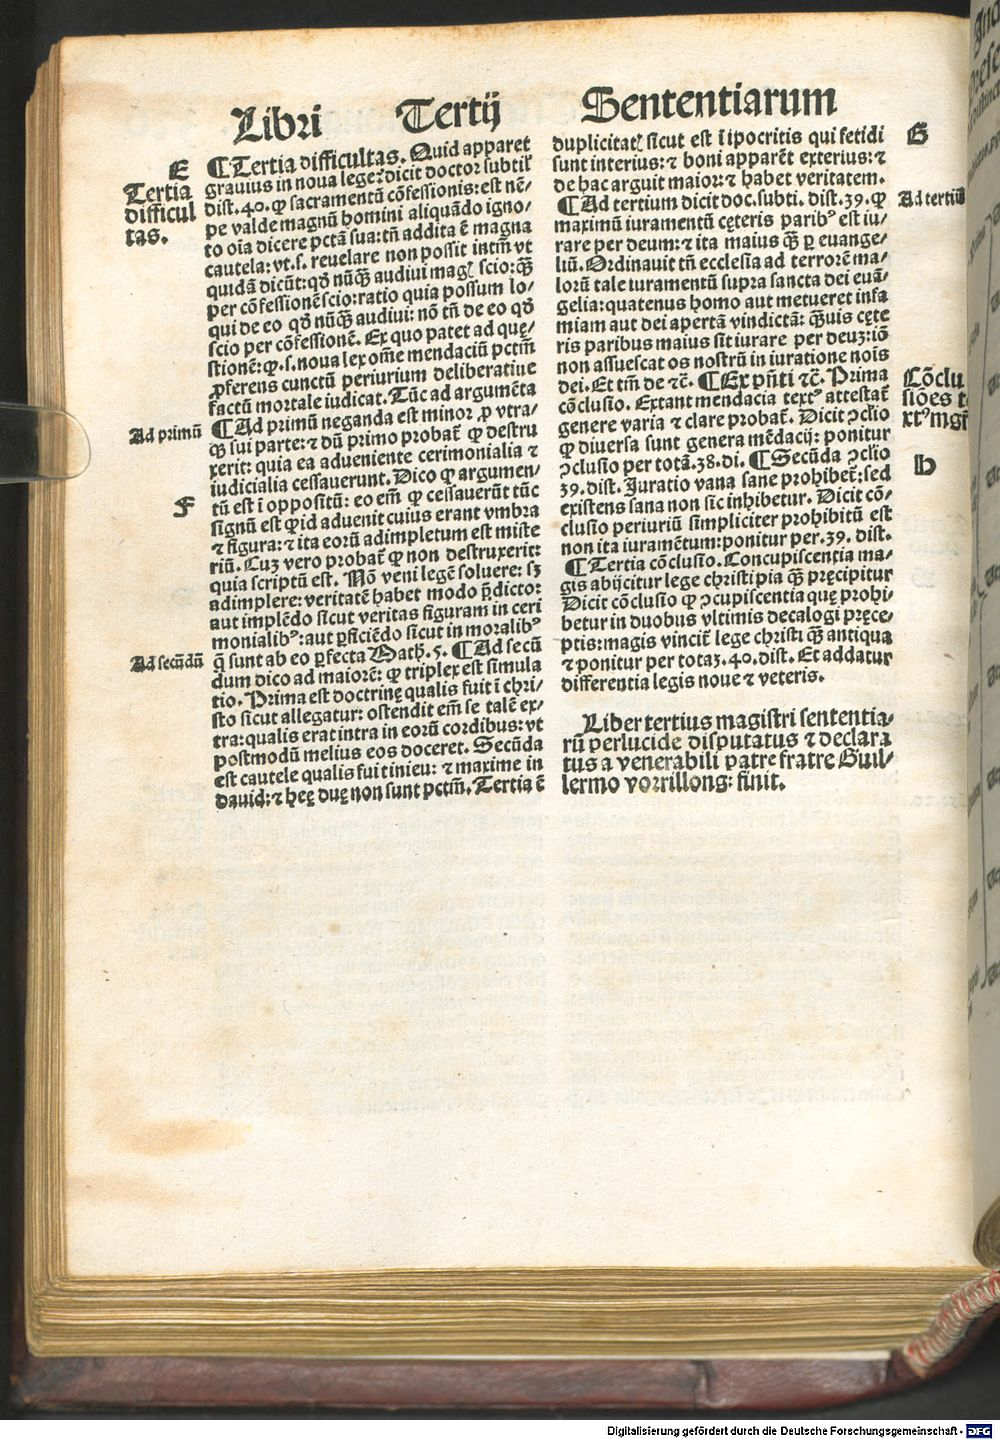 Libri Tertij Sententiarum
E
Tertia
difficul
tas.
¶Tertia difficultas. Quid apparet
grauius in noua lege? dicit doctor subtilꝭ
dist. 40. ꝙ sacramentū cōfessionis: est nē-
pe valde magnū homini aliquādo igno-
to oīa dicere pctā sua: tñ addita ē magna
cautela: vt .s. reuelare non possit intm̄ vt
quidā dicūt: qd̄ nūꝗ̄ audiui magꝭ scio: ꝗ̄
per cōfessionē scio: ratio quia possum lo-
qui de eo qd̄ nūꝗ̄ audiui: nō tñ de eo qd̄
scio per cōfessionē. Ex quo patet ad quę-
stionē: ꝙ .s. noua lex om̄e mendaciū pctm̄
ꝓferens cunctū periurium deliberatiue
factū mortale iudicat. Tūc ad argumēta
Ad primū
¶Ad primū neganda est minor ꝓ vtra-
ꝗ̄ sui parte: ⁊ dū primo probat̄ ꝙ destru
xerit: quia ea adueniente cerimonialia ⁊
iudicialia cessauerunt. Dico ꝙ argumen-
F
tū est ī oppositū: eo em̄ ꝙ cessauerūt tūc
signū est ꝙ id aduenit cuius erant vmbra
⁊ figura: ⁊ ita eorū adimpletum est miste
riū. Cuȝ vero probat̄ ꝙ non destruxerit:
quia scriptū est. Nō veni legē soluere: sȝ
adimplere: veritatē habet modo p̄dicto:
aut implēdo sicut veritas figuram in ceri
monialibꝰ: aut ꝑficiēdo sicut in moralibꝰ
Ad secūdū
q̄ sunt ab eo ꝑfecta Math. 5. ¶Ad secū
dum dico ad maiorē: ꝙ triplex est simula
tio. Prima est doctrinę qualis fuit ī chri-
sto sicut allegatur: ostendit em̄ se talē ex-
tra: qualis erat intra in eorū cordibus: vt
postmodū melius eos doceret. Secūda
est cautele qualis fuit in ieu: ⁊ maxime in
dauid: ⁊ hęę duę non sunt pctm̄. Tertia ē
duplicitatꝭ sicut est ī ipocritis qui fetidi
G
sunt interius: ⁊ boni apparēt exterius: ⁊
de hac arguit maior: ⁊ habet veritatem.
Ad tertiū
¶Ad tertium dicit doc. subti. dist. 39. ꝙ
maximū iuramentū cęteris paribꝰ est iu-
rare per deum: ⁊ ita maius ꝗ̄ ꝑ euange-
liū. Ordinauit tñ ecclesia ad terrorē ma-
lorū tale iuramentū supra sancta dei euā-
gelia: quatenus homo aut metueret infa
miam aut dei apertā vindictā: ꝗ̄uis cęte
ris paribus maius sit iurare per deuȝ: iō
non assuescat os nostrū in iuratione nois
dei. Et tm̄ de ⁊c̄. ¶Ex p̄nti ⁊c̄. Prima
Cōclu
siōes te
xtꝰ mgr̄i
cōclusio. Extant mendacia textꝰ attestat̄
genere varia ⁊ clare probat̄. Dicit ꝯclio
ꝙ diuersa sunt genera mēdacij: ponitur
ꝯclusio per totā .38. di. ¶Secūda ꝯclio
H
39. dist. Iuratio vana sane prohibet̄: sed
existens sana non sic inhibetur. Dicit cō-
clusio periuriū simpliciter prohibitū est
non ita iuramētum: ponitur per .39. dist.
¶Tertia cōclusio. Concupiscentia ma-
gis abijcitur lege christi pia ꝗ̄ pręcipitur
Dicit cōclusio ꝙ ꝯcupiscentia quę prohi-
betur in duobus vltimis decalogi pręce-
ptis: magis vincit̄ lege christi ꝗ̄ antiqua
⁊ ponitur per totaȝ .40. dist. Et addatur
differentia legis noue ⁊ veteris.
Liber tertius magistri sententia-
rū perlucide disputatus ⁊ declara
tus a venerabili patre fratre Guil-
lermo vorrillong: finit.
Digitalisierung gefördert durch die Deutsche Forschungsgemeinschaft - DFG